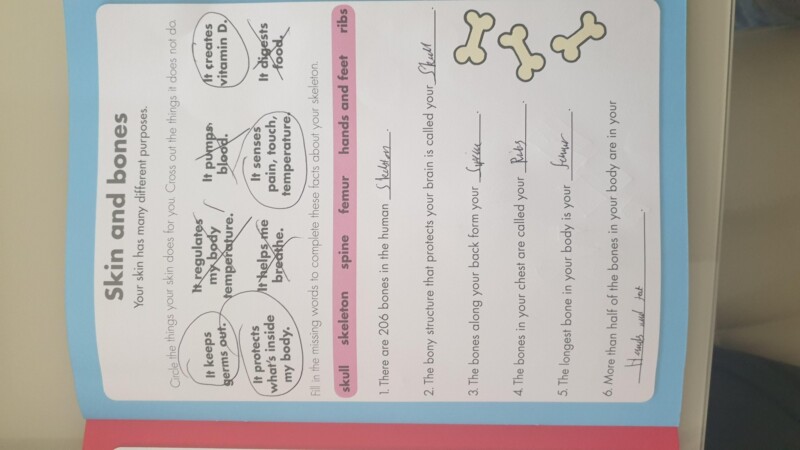 Skin and bones
Your skin has many different purposes.
Circle the things your skin does for you. Cross out the things it does not do.
It keeps
germs out.
It regulates
my body
temperature.
It pumps
blood.
It creates
vitamin D.
It protects
what's inside
my body.
It helps me
breathe.
It senses
pain, touch,
temperature.
It digests
food.
Fill in the missing words to complete these facts about your skeleton.
skull skeleton spine femur hands and feet ribs
1. There are 206 bones in the human Skeleton.
2. The bony structure that protects your brain is called your Skull.
3. The bones along your back form your Spine.
4. The bones in your chest are called your Ribs.
5. The longest bone in your body is your femur.
6. More than half of the bones in your body are in your
Hands and feet.